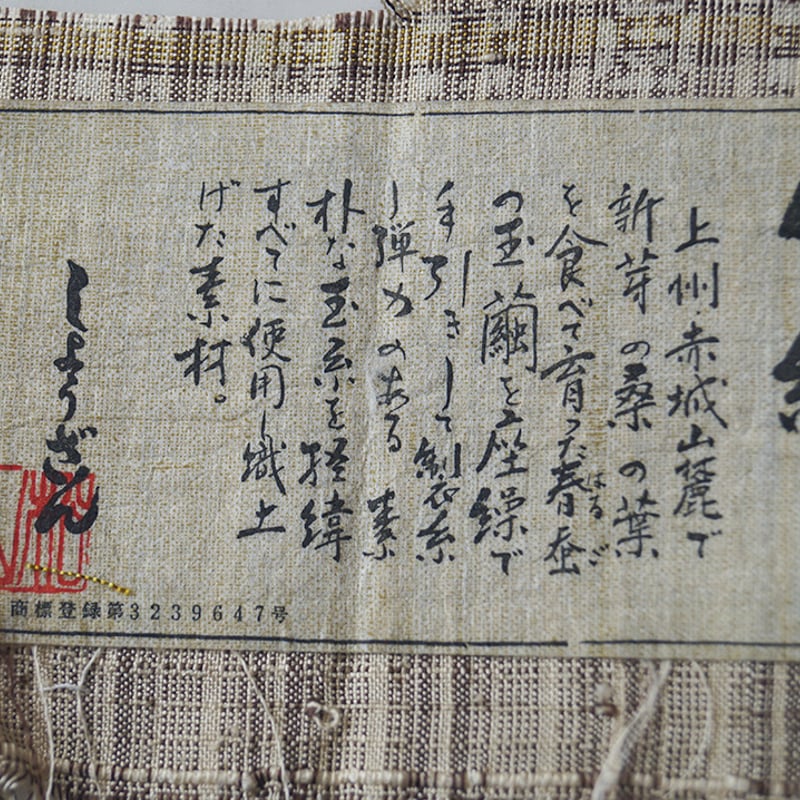 上州・赤城山麓で
新芽の桑の葉
を食べて育った春蚕
はるご
の玉繭を座繰で
手引きして製糸
し弾力のある素
朴な玉糸を経緯
すべてに使用し織上
げた素材。
しょうざん
商標登録第3239647号